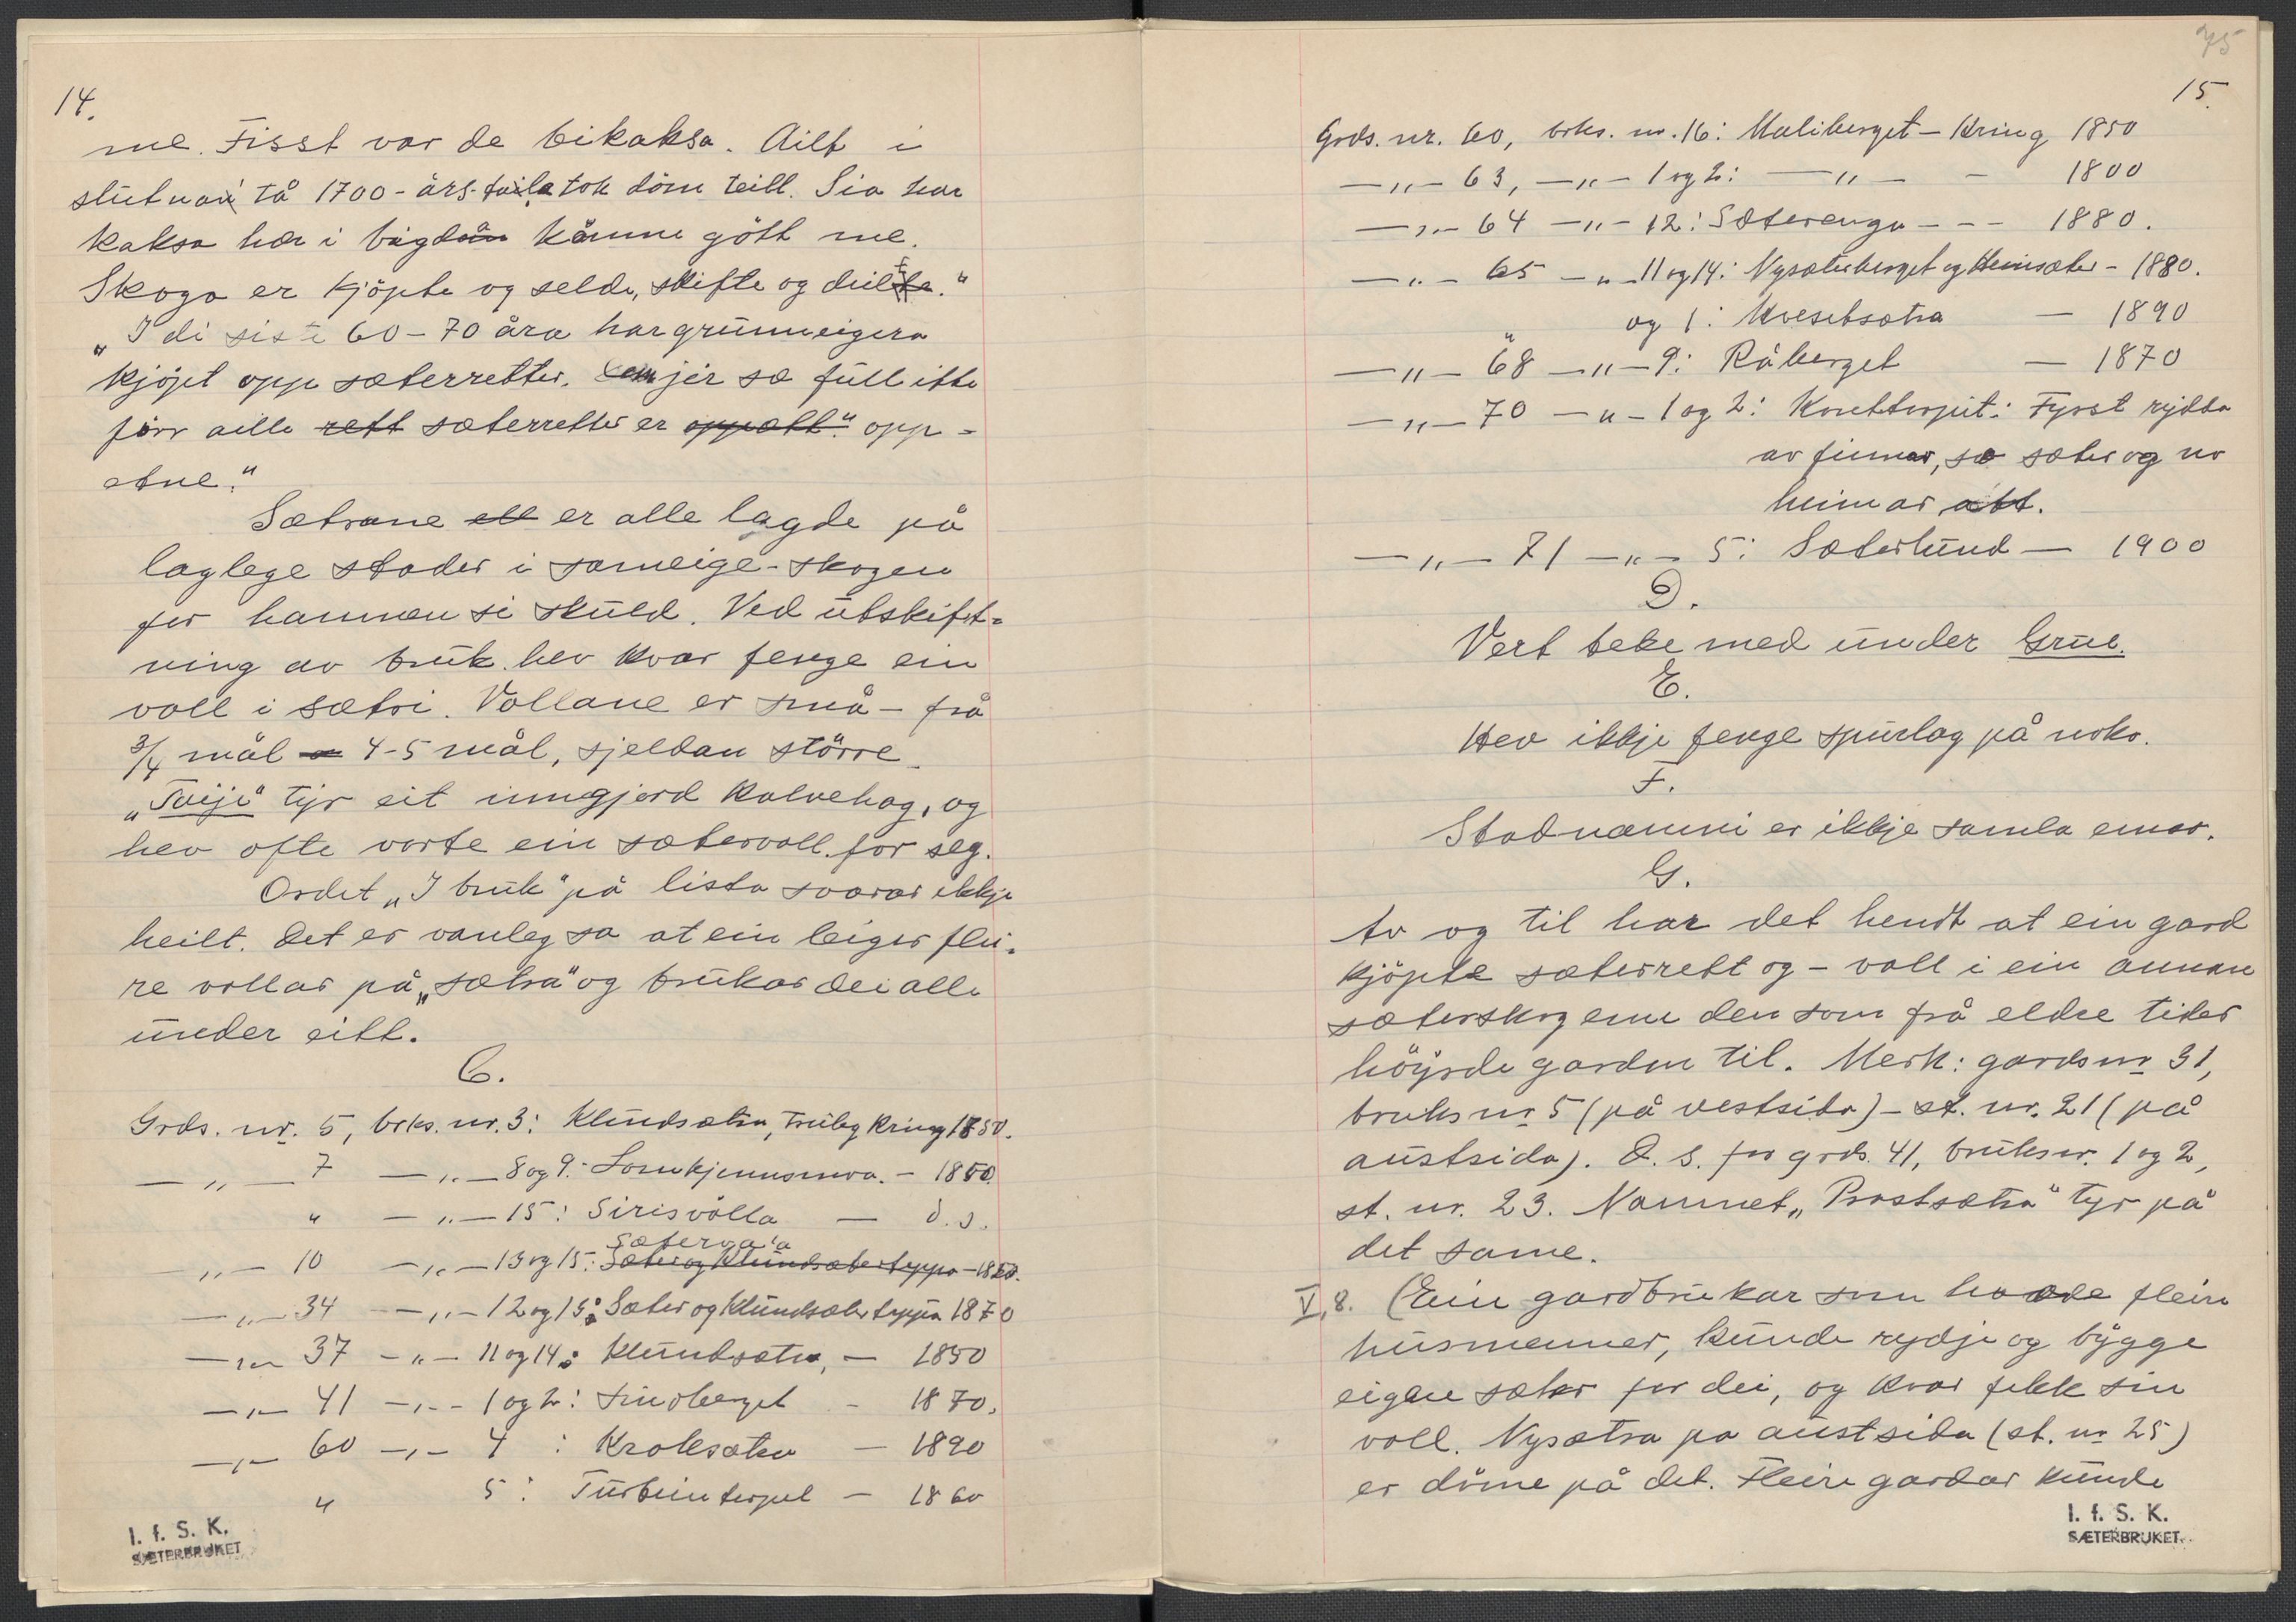 14.
me. Fisst var de bikaksa. Ailt i
slutnan tå 1700-års-taila tok döm teill. Sia har
kaksa hær i bigdin kåmme gött me.
Skoga er kjöpte og selde, skifte og deilte."
"I di siste 60-70 åra har grunneigera
kjöpt opp sæterretter. jer sæ full itte
förr aille rett sæterretter er oppætt." opp-
ætne."
Sætrane ell er alle lagde på
laglege stader i sameige-skogen
for hamnen si skuld. Ved utskift-
ning av bruk hev kvar fenge ein
voll i sætri. Vollane er små - frå
3/4 mål a 4-5 mål, sjeldan större.
"Tveije" tyr eit inngjerd kalvehag, og
hev ofte vorte ein sætervoll for seg.
Ordet "I bruk" på lista svarar ikkje
heilt. Det er vanleg so at ein leiger flei-
re vollar på "sætra" og brukar dei alle
under eitt.
C.
Grds. nr. 5, brks. nr. 3: Klundsætra, truleg kring 1850.
—"— 7 —"— 8 og 9: - 1850.
" —"— 15: Sirisvålla — d.s.
Sætervala
—"— 10 —"— 13 og 15: Sæter og Klundsæterteppa - 1850.
—"— 34 —"— 12 og 15: Sæter og Klundsæterteppa 1870
—"— 37 —"— 11 og 14: Klundsætra, — 1850
—"— 41 —"— 1 og 2: Linsberget - 1870.
—"— 60 —"— 4 : Kroksætra — 1890
" 5: — 1860
I. f. S. K.
SÆTERBRUKET
75
15.
Grds. nr. 60, brks. nr. 16: Maliberget - Kring 1850
—"— 63, —"— 1 og 2: —"— - 1800
—"— 64 —"— 12: Sæterenga - - - 1880.
—"— 65 —"— 11 og 14: Nysæterberget og Heimsæter - 1880.
" og 1: Kvesetsætra — 1890
—"— 68 —"— 9: Råberget — 1870
—"— 70 —"— 1 og 2: Kvetterput: Fyrst rydda
av finnar, so sæter og no
heimar att.
—"— 71 —"— 5: Sæterlund — 1900
D.
Vert teke med under Grue.
E.
Hev ikkje fenge spurlag på noko.
F.
Stadnamni er ikkje samla enno.
G.
Av og til har det hendt at ein gard
kjöpte sæterrett og - voll i ein annan
sæterskog enn den som frå eldre tider
höyrde garden til. Merk: gards nr 31,
bruks nr 5 (på vestsida) - st. nr. 21 (på
austsida). D. s. for grds. 41, bruksnr. 1 og 2,
st. nr. 23. Namnet "Prostsætra" tyr på
det same.
V, 8. (Ein gardbrukar som hadde fleire
husmenner, kunde rydje og bygge
eigen sæter for dei, og kvar fekk sin
voll. Nysætra på austsida (st. nr 25)
er döme på det. Fleire gardar kunde
I. f. S. K.
SÆTERBRUKET.